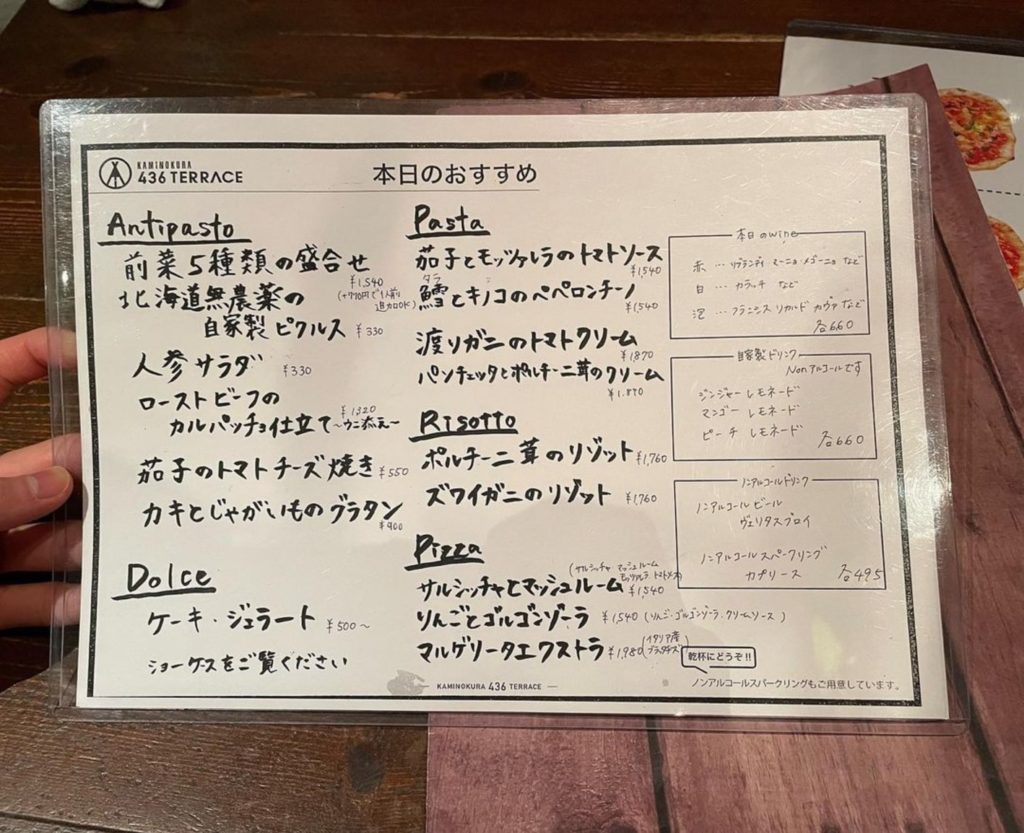 KAMINOKURA
436 TERRACE
本日のおすすめ
Antipasto
前菜5種類の盛合せ
¥1,540
(+770円で1人前
追加OK)
北海道無農薬の
自家製ピクルス ¥330
人参サラダ ¥330
ローストビーフの
¥1320
カルパッチョ仕立て〜ウニ添え〜
茄子のトマトチーズ焼き ¥550
カキとじゃがいものグラタン
¥900
Dolce
ケーキ・ジェラート ¥500〜
ショーケースをご覧ください
Pasta
茄子とモッツァレラのトマトソース
¥1540
タラ
鱈とキノコのペペロンチーノ
¥1,540
渡りガニのトマトクリーム
¥1,870
パンチェッタとポルチーニ茸のクリーム
¥1.870
Risotto
ポルチーニ茸のリゾット ¥1,760
ズワイガニのリゾット ¥1,760
Pizza
(サルシッチャ・マッシュルーム
モッツァレラ トマトソース)
サルシッチャとマッシュルーム
¥1,540
りんごとゴルゴンゾーラ ¥1,540 (りんご・ゴルゴンゾーラ・クリームソース)
マルゲリータエクストラ ¥1,980 (イタリア産
ブッラータチーズ)
本日のwine
赤 … リブランディ マーニョ メゴーニョ など
白 … カラッチ など
泡 … フランシス リカルド カヴァ など
各660
自家製ドリンク
Nonアルコールです
ジンジャー レモネード
マンゴー レモネード
ピーチ レモネード
各660
ノンアルコールドリンク
ノンアルコールビール
ヴェリタスブロイ
ノンアルコールスパークリング
カプリース 各495
乾杯にどうぞ!!
ノンアルコールスパークリングもご用意しています。
KAMINOKURA 436 TERRACE